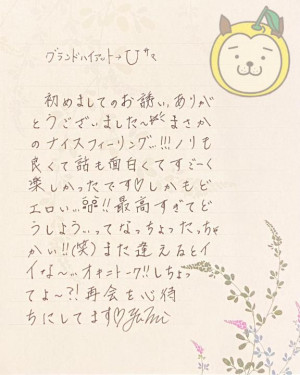 グランドハイアット→Uサマ
初めましてのお誘い、ありが
とうございました〜まさか
のナイスフィーリング…!!!ノリも
良くて話も面白くてすごーく
楽しかったです♡しかもど
エロい…!!最高すぎてど
うしよう…ってなっちょったっちゃ
かい!!(笑)また逢えるとイ
イな〜…オキニトーク!!しちょっ
てよ〜?!再会を心待
ちにしてます♡